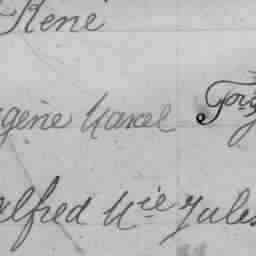 René
gène Marcel
Alfred Mie Jules